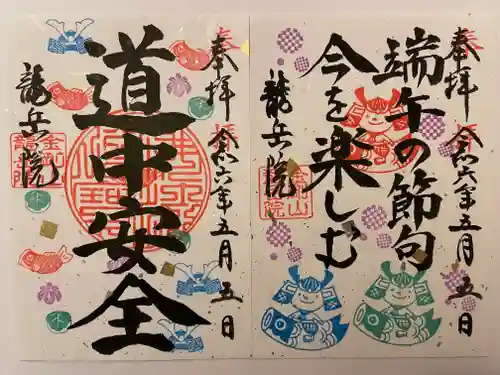 奉拝
令和六年五月五日
道中安全
龍兵院
奉拝
令和六年五月五日
端午の節句
今を楽しむ
龍兵院